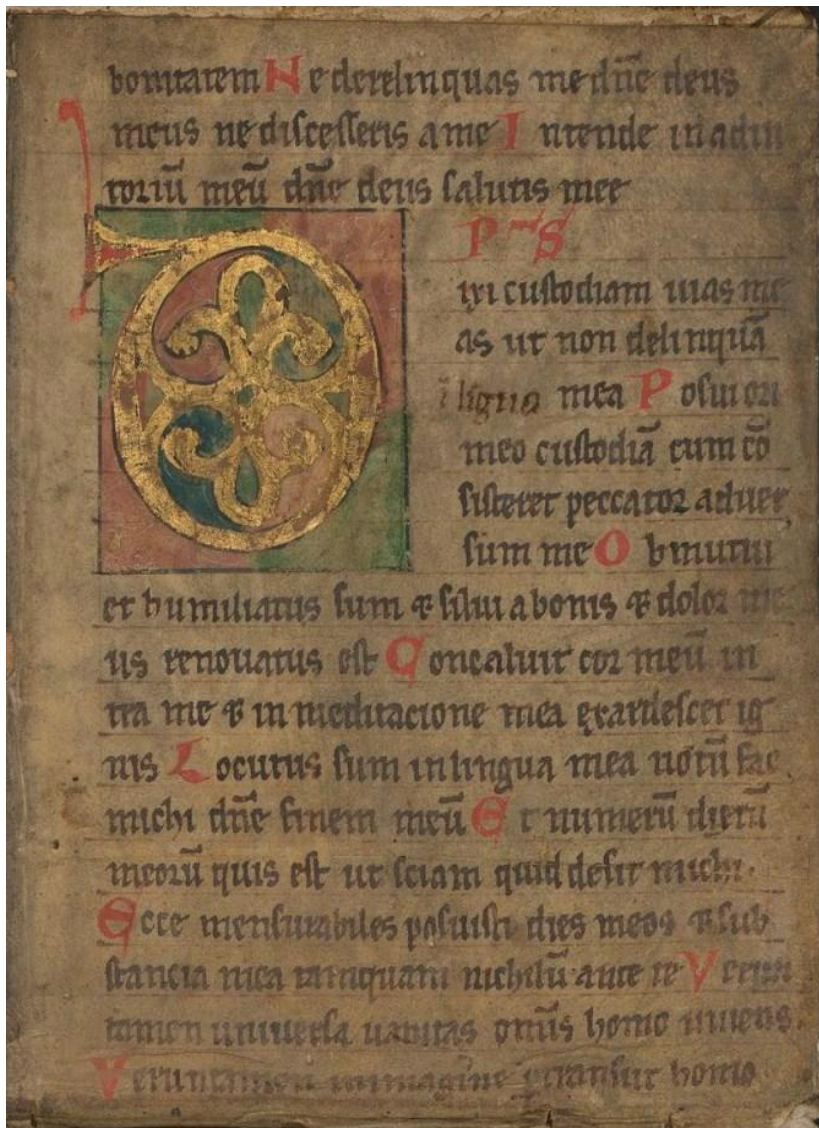 bonitatem Ne derelinquas me dn̄e deus
meus ne discesseris a me Intende in adiu
toriū meū dn̄e deus salutis mee
Ps
Dixi custodiam uias me
as ut non delinquā
ī ligua mea Posui ori
meo custodiā cum cō
sisteret peccator aduer
sum me Obmutui
et humiliatus sum & silui a bonis & dolor me
us renouatus est Concaluit cor meū in
tra me & in meditacione mea exardescet ig
nis Locutus sum in lingua mea notū fac
michi dn̄e finem meū Et numerū dierū
meorū quis est ut sciam quid desit michi.
Ecce mensurabiles posuisti dies meos & sub
stancia mea tamquam nichilū ante te Verūp
tamen uniuersa uanitas om̄is homo uiuens.
Veruntamen in imagine ptransit homo